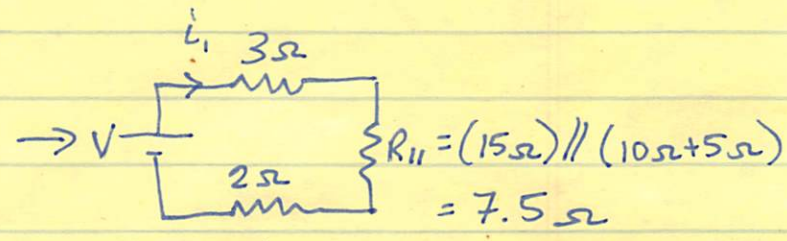 i₁
3Ω
→ V
R₁₁ = (15Ω) // (10Ω+5Ω)
2Ω
= 7.5Ω